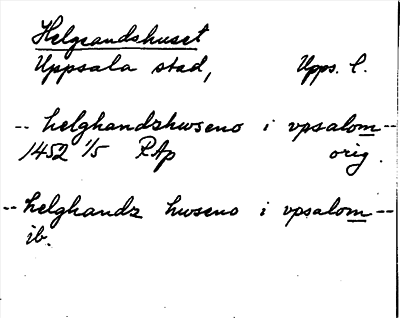 Helgeandshuset
Uppsala stad, Upps. l.
-- helghandzhwseno i vpsalom --
1452 1/5 RAp orig.
-- helghandz hwseno i vpsalom --
ib.